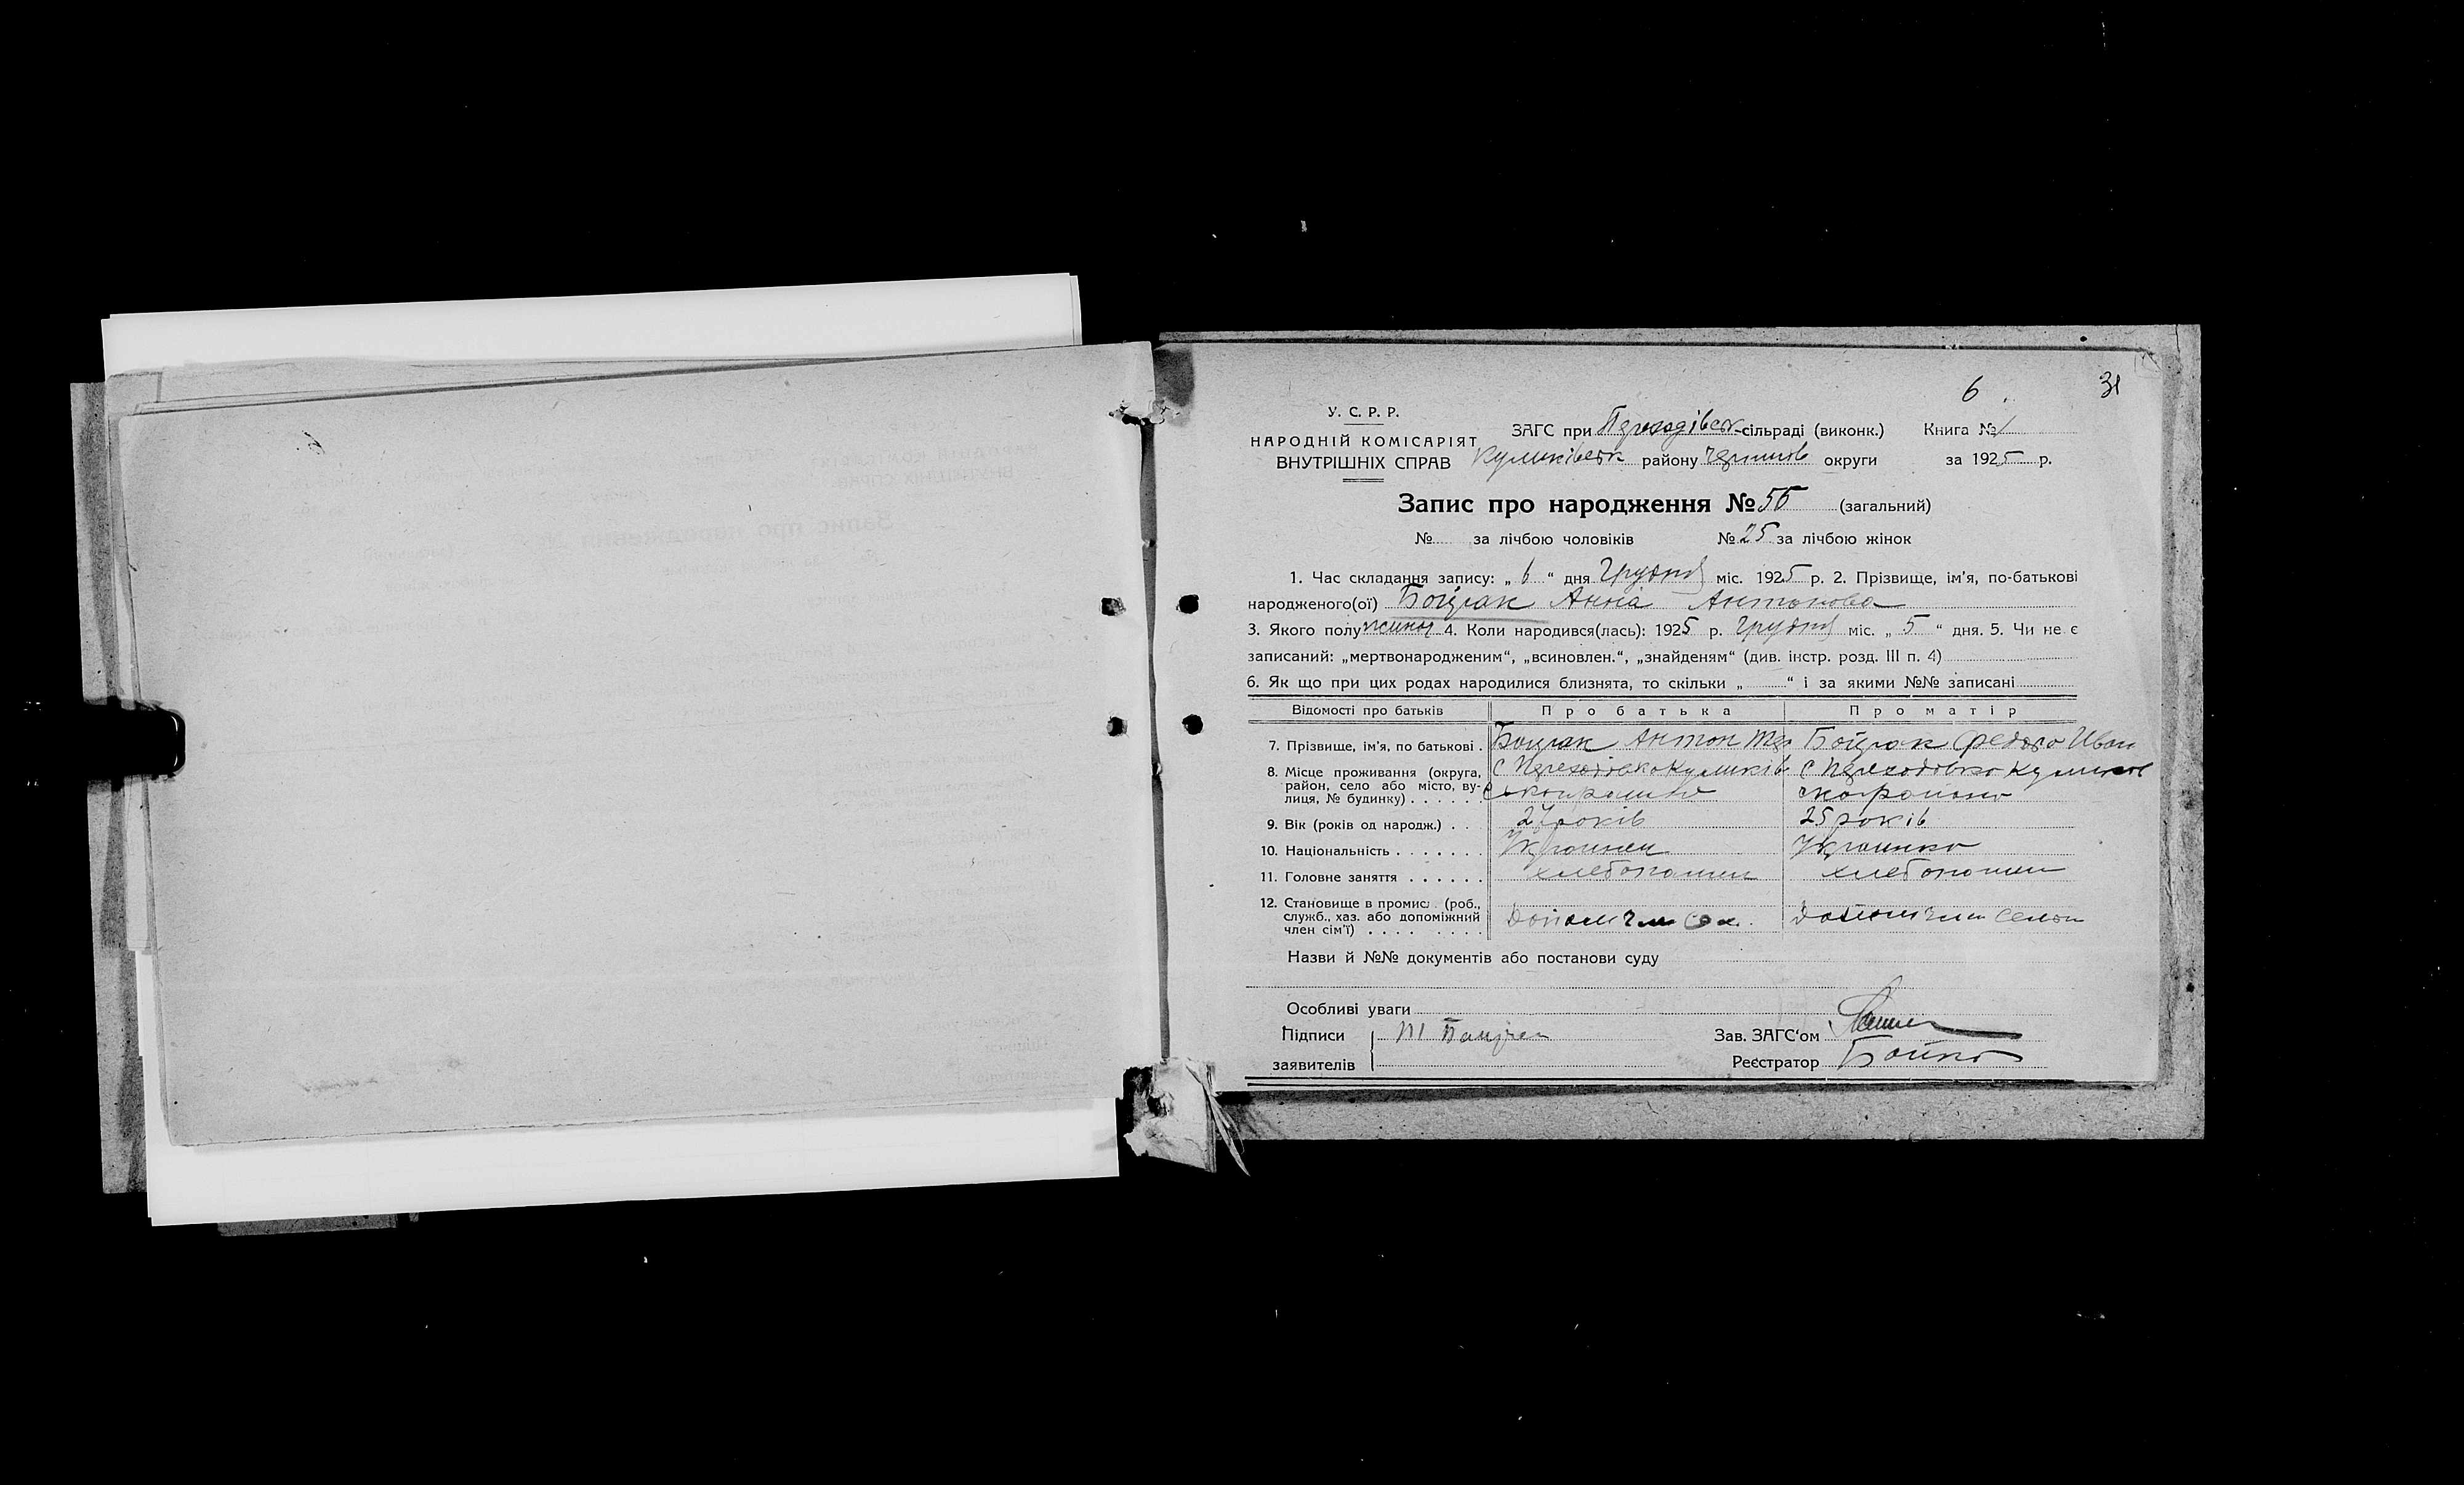 6 31
У. С. Р. Р.
НАРОДНІЙ КОМІСАРІЯТ
ВНУТРІШНІХ СПРАВ
ЗАГС при Переходівськ сільраді (виконк.) Книга № 1
Куликівськ району Черниг округи за 1925 р.
Запис про народження № 56 (загальний)
№ за лічбою чоловіків № 25 за лічбою жінок
1. Час складання запису: „ 6 “ дня Грудня міс. 1925 р. 2. Прізвище, ім'я, по-батькові
народженого(ої) Анна Антонова
3. Якого полу жиноч 4. Коли народився(лась): 1925 р. Грудня міс. „ 5 “ дня. 5. Чи не є
записаний: „мертвонародженим“, „всиновлен.“, „знайденям“ (див. інстр. розд. III п. 4)
6. Як що при цих родах народилися близнята, то скільки „ “ і за якими №№ записані
Відомості про батьків Про батька Про матір
7. Прізвище, ім'я, по батькові . Антон Федора Иван
8. Місце проживання (округа, район, село або місто, вулиця, № будинку) . . . . . .
9. Вік (років од народж.) . . 27 років 25 років
10. Національність . . . . . . . Украинец Украинка
11. Головне заняття . . . . . . хлебопашец хлебопашец
12. Становище в промисл. (роб.,
служб., хаз. або допоміжний
член сім'ї) . . . . . . . .
Назви й №№ документів або постанови суду
Особливі уваги
Підписи Зав. ЗАГС'ом
заявителів Реєстратор Бойко